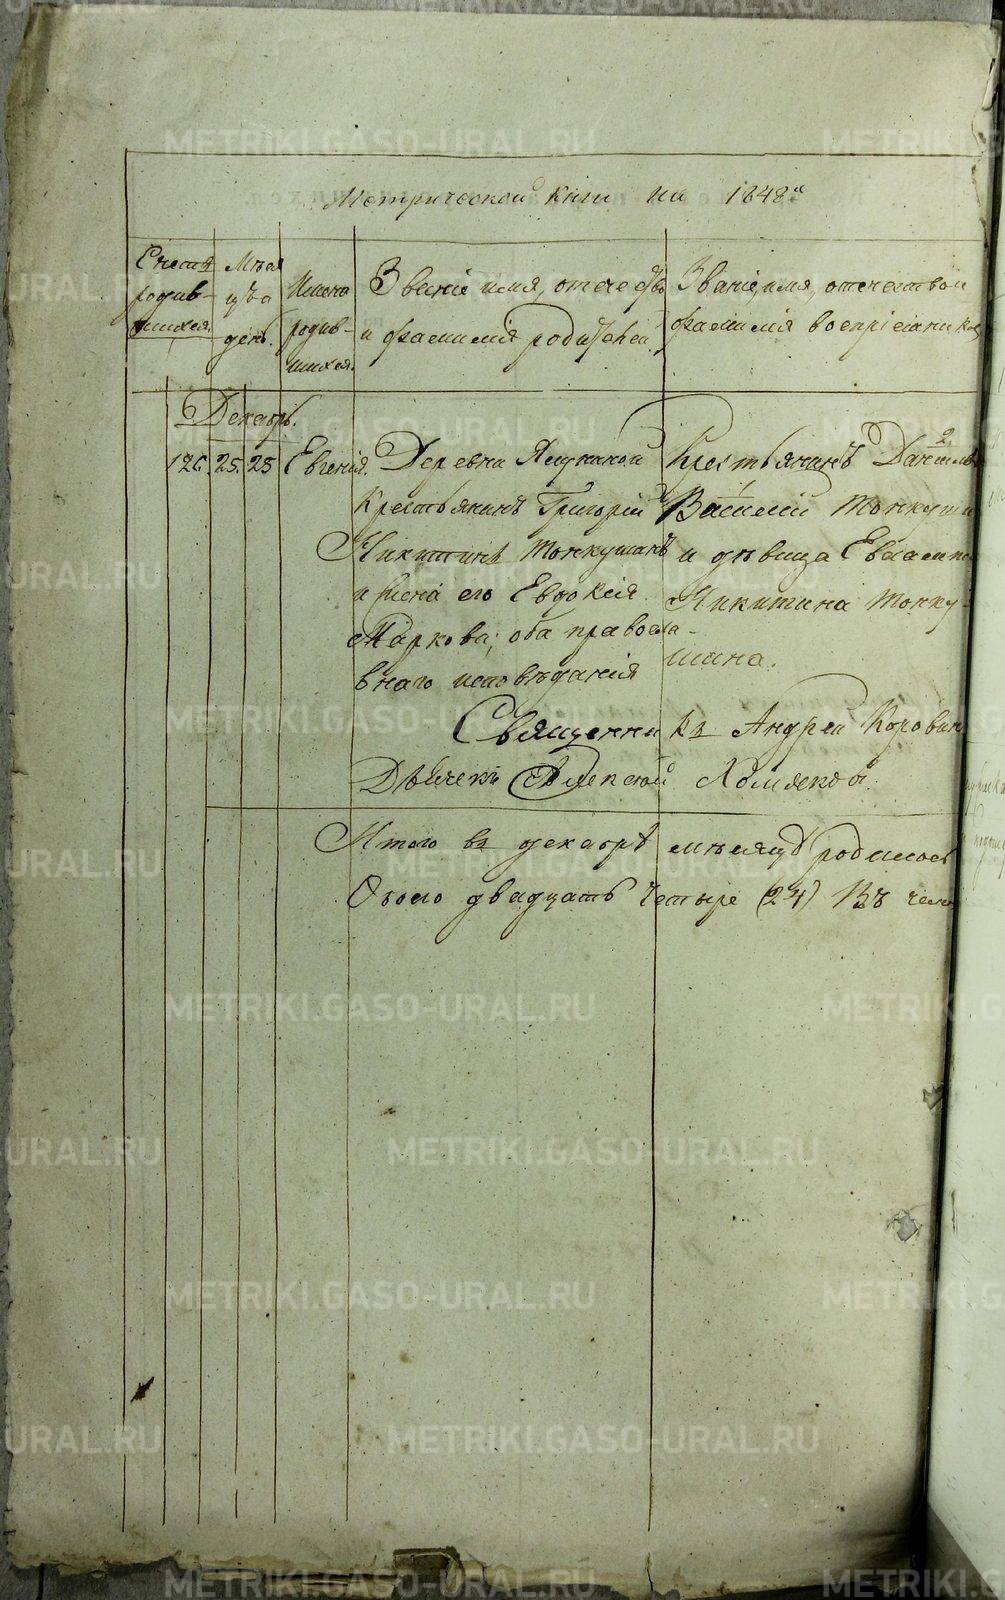 Метрической книги на 1848й
Счетъ родив- шихся.
Мѣся цъ и день.
Имена родив- шихся.
Званіе имя, отечество
и фамилія родителей.
Званіе, имя, отечество и
фамилія воспріемников
Декабрь.
126 25 25 Евгенія.
Деревни
Крестьянинъ Григорій
Никитинъ Тонкушинъ
и жена его Евдокія
Маркова; оба правосла-
внаго исповѣданія
Крестьянинъ Даніилъ
Василій Тонкушин
и дѣвица Евлампія
Никитина Тонку-
шина.
Священникъ Андрей Коровин
Дьячекъ Хомяковъ.
Итого въ декабрѣ мѣсяцѣ родилось
Обоего двадцать четыре (24) Въ
METRIKI.GASO-URAL.RU